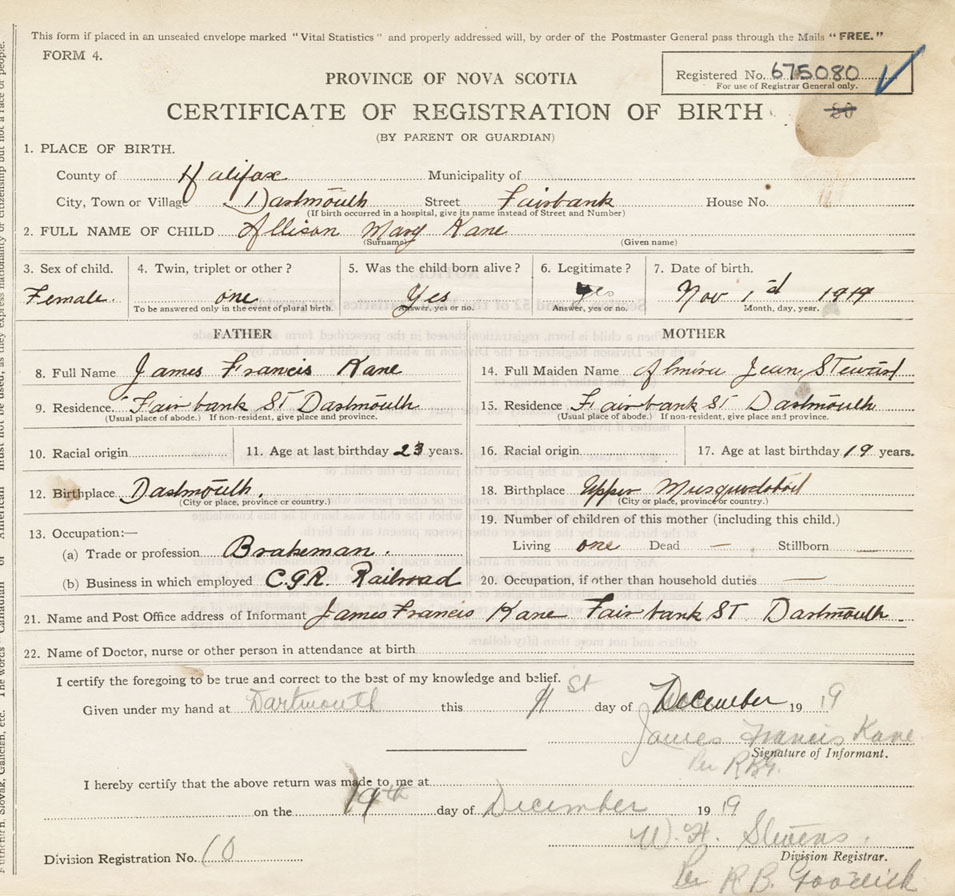 This form if placed in an unsealed envelope marked "Vital Statistics" and properly addressed will, by order of the Postmaster General pass through the Mails "FREE."
FORM 4.
Registered No. 675080
For use of Registrar General only.
80
PROVINCE OF NOVA SCOTIA
CERTIFICATE OF REGISTRATION OF BIRTH
(BY PARENT OR GUARDIAN)
1. PLACE OF BIRTH.
County of Halifax Municipality of
City, Town or Village Dartmouth Street Fairbank House No.
(If birth occurred in a hospital, give its name instead of Street and Number)
2. FULL NAME OF CHILD Allison Mary Kane
(Surname) (Given name)
3. Sex of child. 4. Twin, triplet or other? 5. Was the child born alive? 6. Legitimate? 7. Date of birth.
Female one Yes Yes Nov 1 1919
To be answered only in the event of plural birth. Answer, yes or no. Answer, yes or no. Month, day, year.
FATHER MOTHER
8. Full Name James Francis Kane 14. Full Maiden Name Almira Jean
9. Residence Fairbank ST Dartmouth 15. Residence Fairbank ST Dartmouth
(Usual place of abode.) If non-resident, give place and province. (Usual place of abode.) If non-resident, give place and province.
10. Racial origin 11. Age at last birthday 23 years. 16. Racial origin 17. Age at last birthday 19 years.
12. Birthplace Dartmouth. 18. Birthplace Upper
(City or place, province or country.) (City or place, province or country.)
13. Occupation:— 19. Number of children of this mother (including this child.)
(a) Trade or profession Brakeman. Living one Dead — Stillborn
(b) Business in which employed C.G.R. Railroad 20. Occupation, if other than household duties —
21. Name and Post Office address of Informant James Francis Kane Fairbank ST Dartmouth
22. Name of Doctor, nurse or other person in attendance at birth
I certify the foregoing to be true and correct to the best of my knowledge and belief.
Given under my hand at Dartmouth this St day of December 1919
James Francis Kane
Signature of Informant.
Per
I hereby certify that the above return was made to me at
on the 19th day of December 1919
W. H. Stevens.
Division Registration No. 10 Division Registrar.
Per R.B.